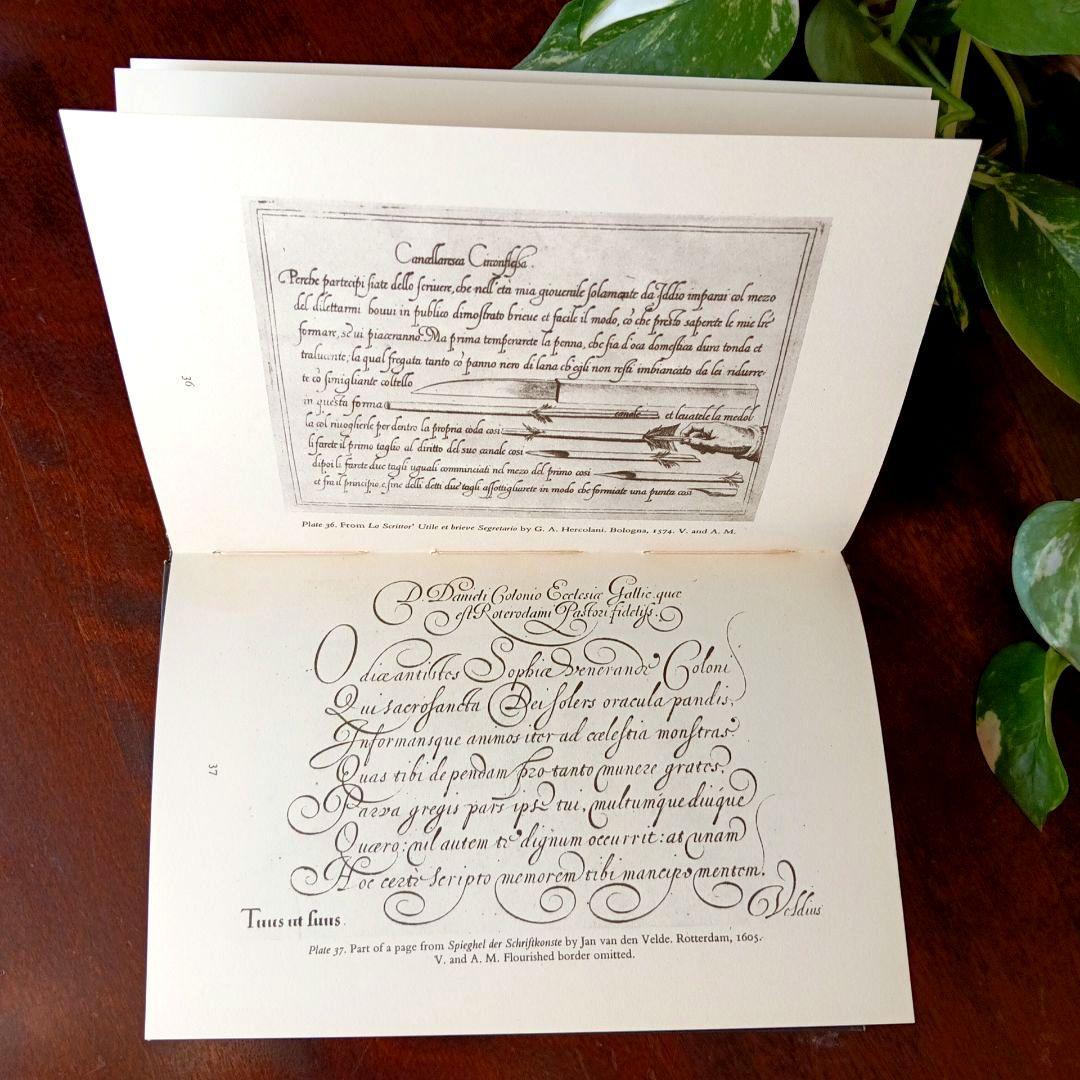 36
Cancellaresca Circonflessa.
Perche partecipi siate dello scriuere, che nell'età mia giouenile solamente da Iddio imparai col mezo
del dilettarmi houui in publico dimostrato brieue et facile il modo, cõ che presto saperete le mie lr̃e
formare, se ui piaceranno. Ma prima temperarete la penna, che sia d'oca domestica dura tonda et
tralucente; la qual fregata tanto cõ panno nero di lana ch'egli non resti imbiancato da lei ridurre-
te cõ simigliante coltello
in questa forma canale et leuatele la medol
la col riuogherle per dentro la propria coda cosi
li farete il primo taglio al diritto del suo canale cosi
dipoi li farete due tagli uguali comminciati nel mezo del primo cosi
et fra il principio, e fine delli detti due tagli assottigliarete in modo che formiate una punta cosi
Plate 36. From Lo Scrittor' Utile et brieve Segretario by G. A. Hercolani. Bologna, 1574. V. and A. M.
37
D. Danieli Colonio Ecclesiæ Gallic. quæ
est Roterodami Pastori fideliss.
O dicæ antistes Sophiæ venerande Coloni
Qui sacrosancta Dei solers oracula pandis,
Informansque animos iter ad cælestia monstras
Quas tibi dependam pro tanto munere grates?
Parva gregis pars ipse tui, multumque diuque
Quæro: nil autem te dignum occurrit: at unam
Hoc certe scripto memorem tibi mancipo mentem.
Veldius
Tuus ut suus.
Plate 37. Part of a page from Spieghel der Schriftkonste by Jan van den Velde. Rotterdam, 1605.
V. and A. M. Flourished border omitted.